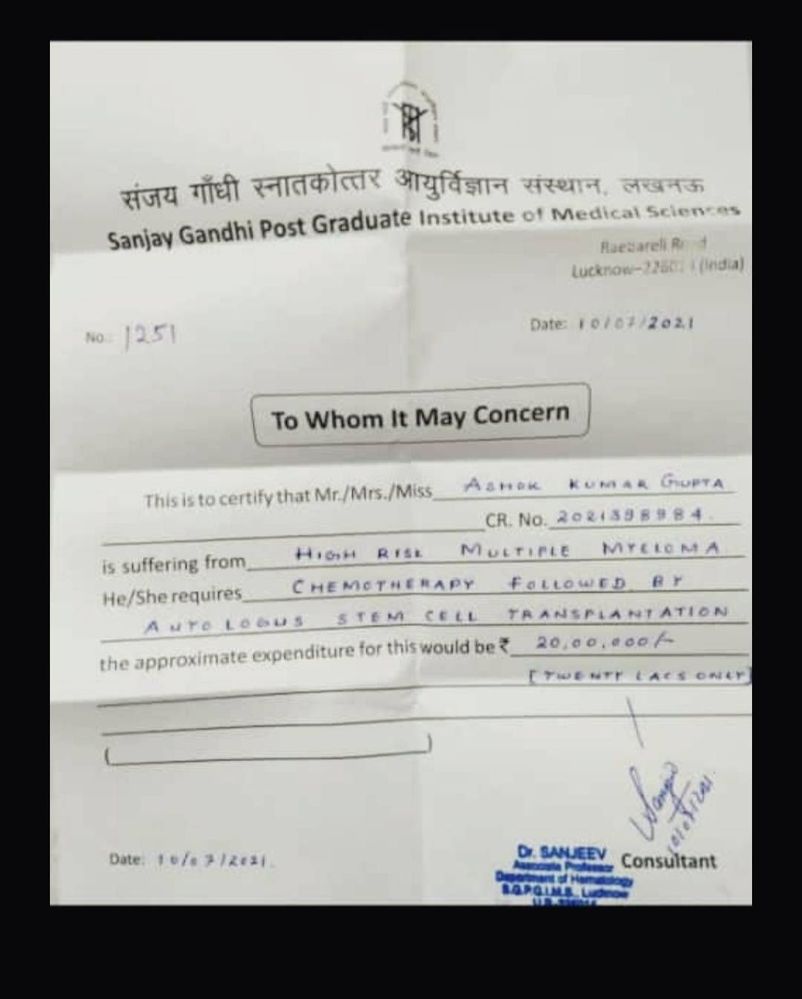 संजय गाँधी स्नातकोत्तर आयुर्विज्ञान संस्थान, लखनऊ
Sanjay Gandhi Post Graduate Institute of Medical Sciences
Raebareli Road
Lucknow-226014 (India)
No.: 1251
Date: 10/07/2021
To Whom It May Concern
This is to certify that Mr./Mrs./Miss ASHOK KUMAR GUPTA
CR. No. 2021398984.
is suffering from HIGH RISK MULTIPLE MYELOMA
He/She requires CHEMOTHERAPY FOLLOWED BY
AUTOLOGUS STEM CELL TRANSPLANTATION
the approximate expenditure for this would be ₹ 20,00,000/-
[TWENTY LACS ONLY]
Date: 10/07/2021.
Dr. SANJEEV
Associate Professor
Department of Hematology
S.G.P.G.I.M.S., Lucknow
Consultant